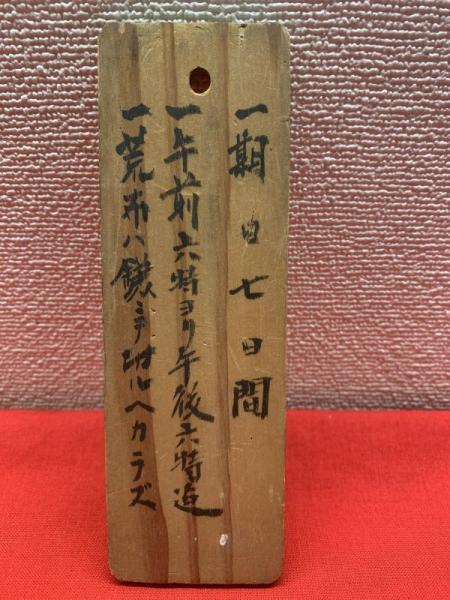 一期日七日間
一午前六特ヨリ午後六特迠
一荒布ハ鎌ニテルヘカラズ